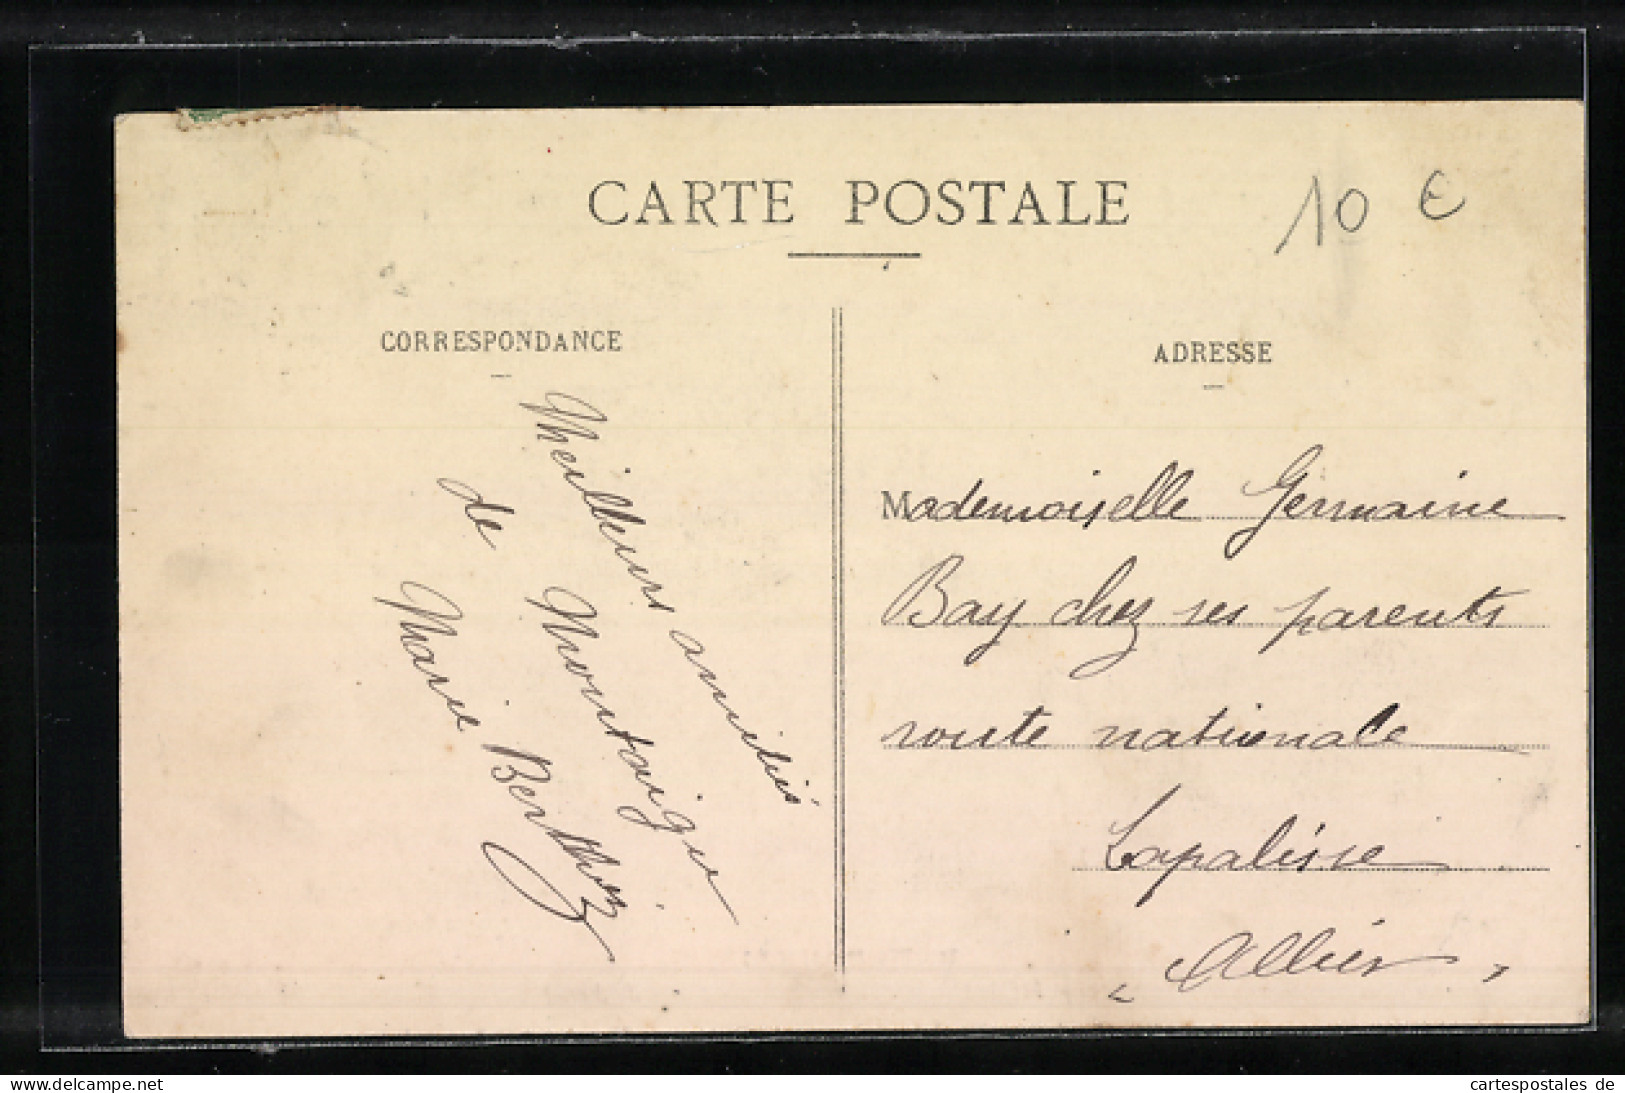 CARTE POSTALE
10 €
CORRESPONDANCE
Meilleurs amitiés
de Montaigu
Marie Berthez
ADRESSE
Mademoiselle Germaine
Bay chez ses parents
route nationale
Lapalisse
Allier
www.delcampe.net
cartespostales de